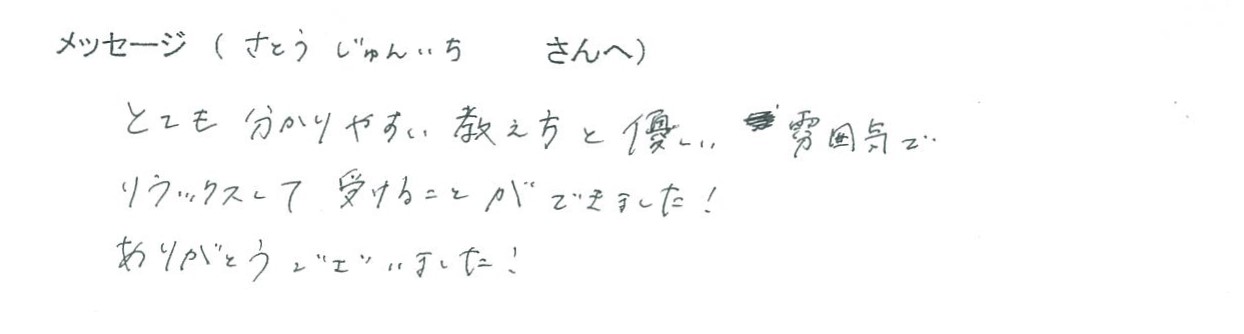 メッセージ（さとう じゅんいち さんへ）
とても 分かりやすい 教え方と 優しい 雰囲気で
リラックスして 受けることが できました！
ありがとうございました！